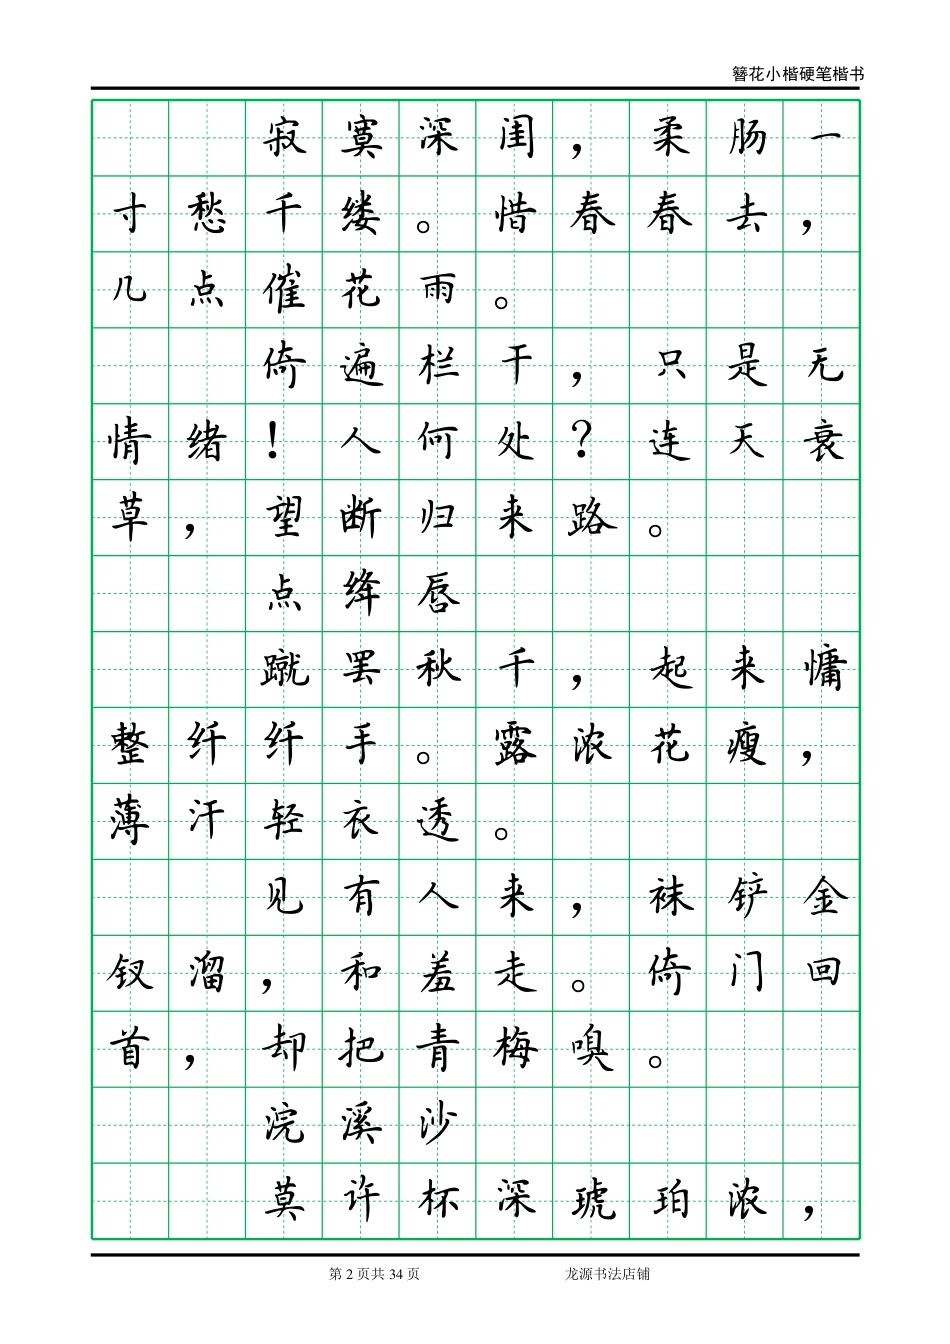 簪花小楷硬笔楷书
寂寞深闺，柔肠一
寸愁千缕。惜春春去，
几点催花雨。
倚遍栏干，只是无
情绪！人何处？连天衰
草，望断归来路。
点绛唇
蹴罢秋千，起来慵
整纤纤手。露浓花瘦，
薄汗轻衣透。
见有人来，袜铲金
钗溜，和羞走。倚门回
首，却把青梅嗅。
浣溪沙
莫许杯深琥珀浓，
第 2 页共 34 页 龙源书法店铺